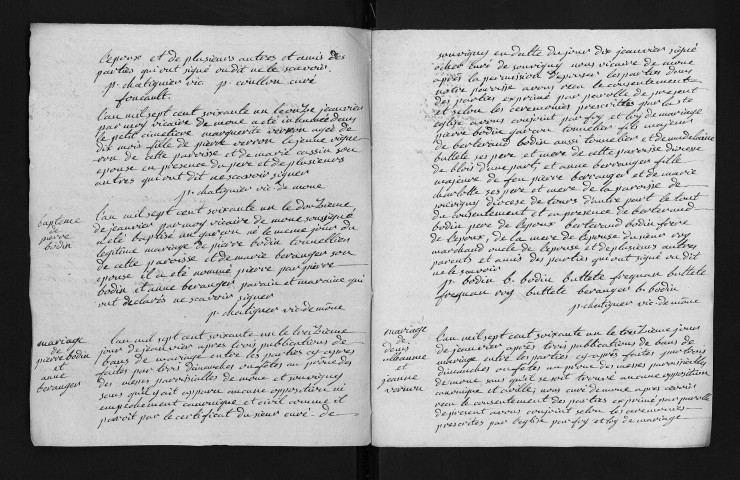 l'epoux et de plusieurs autres et amis des
parties qui ont signé ou dit ne le scavoir.
p. chatignier vic p. coullon curé
foucault.
l'an mil sept cent soixante un le onzieme janvier
par moy vicaire de mone a eté inhumée dans
le petit cimetiere marguerite verron agée de
dix mois fille de pierre verron le jeune vigne-
ron de cette paroisse et de marie cassin son
epouse en presence du pere et de plusieurs
autres qui ont dit ne scavoir signer
p. chatignier vic de mone
bapteme
de
pierre
bodin
l'an mil sept cent soixante un le douzieme
de janvier par moy vicaire de mone soussigné
a eté baptisé un garçon né le meme jour du
legitime mariage de pierre bodin tonnellier
de cette paroisse et de marie beranger son
epouse et a eté nommé pierre par pierre
bodin et anne beranger parain et maraine qui
ont declarés ne scavoir signer
p. chatignier vic de mone
mariage
de
pierre bodin
et
anne
beranger
l'an mil sept cent soixante un le treizieme
jour de janvier apres trois publications de
bans de mariage entre les parties cy apres
faites par trois dimanches ou fetes au prone des
des messes paroissialles de mone et souvigny
sans qu'il y ait apparu aucune opposition ni
empechement canonique et civil comme il
paroit par le certificat du sieur curé de
souvigny en datte du jour dix janvier signé
curé de souvigny nous vicaire de mone
apres la permission d'epouser les parties dans
notre paroisse avons receu le consentement
des parties exprimé par parolle de present
et selon les ceremonies prescrites par la ste
eglise avons conjoint par foy et loy de mariage
pierre bodin garçon tonnelier fils majeur
de berterand bodin aussi tonnelier et de madelaine
buttete ses pere et mere de cette paroisse diocese
de blois d'une part et anne berranger fille
majeure de feu pierre beranger et de marie
charlotte ses pere et mere de la paroisse de
souvigny diocese de tours d'autre part le tout
du consentement et en presence de berterand
bodin pere de l'epoux berterand bodin frere
de l'epoux, de la mere de l'epouse du sieur roy
marchand oncle de l'epouse et de plusieurs autres
parents et amis des parties qui ont signé ou dit
ne le scavoir
p. bodin b. bodin buttete buttete
roy buttete beranger b. bodin
p. chatignier vic de mone
mariage
de
denis
et
jeanne
verron
l'an mil sept cent soixante un le treizieme jour
de janvier apres trois publications de bans de
mariage entre les parties cy apres faites par trois
dimanches ou fetes au prone des messes paroissialles
de mone sans qu'il se soit trouvé aucune opposition
canonique et civille, nous curé de mone apres avoir
receu le consentement des parties exprimé par parolle
de present avons conjoint selon les ceremonies
prescrites par l'eglise par foy et loy de mariage